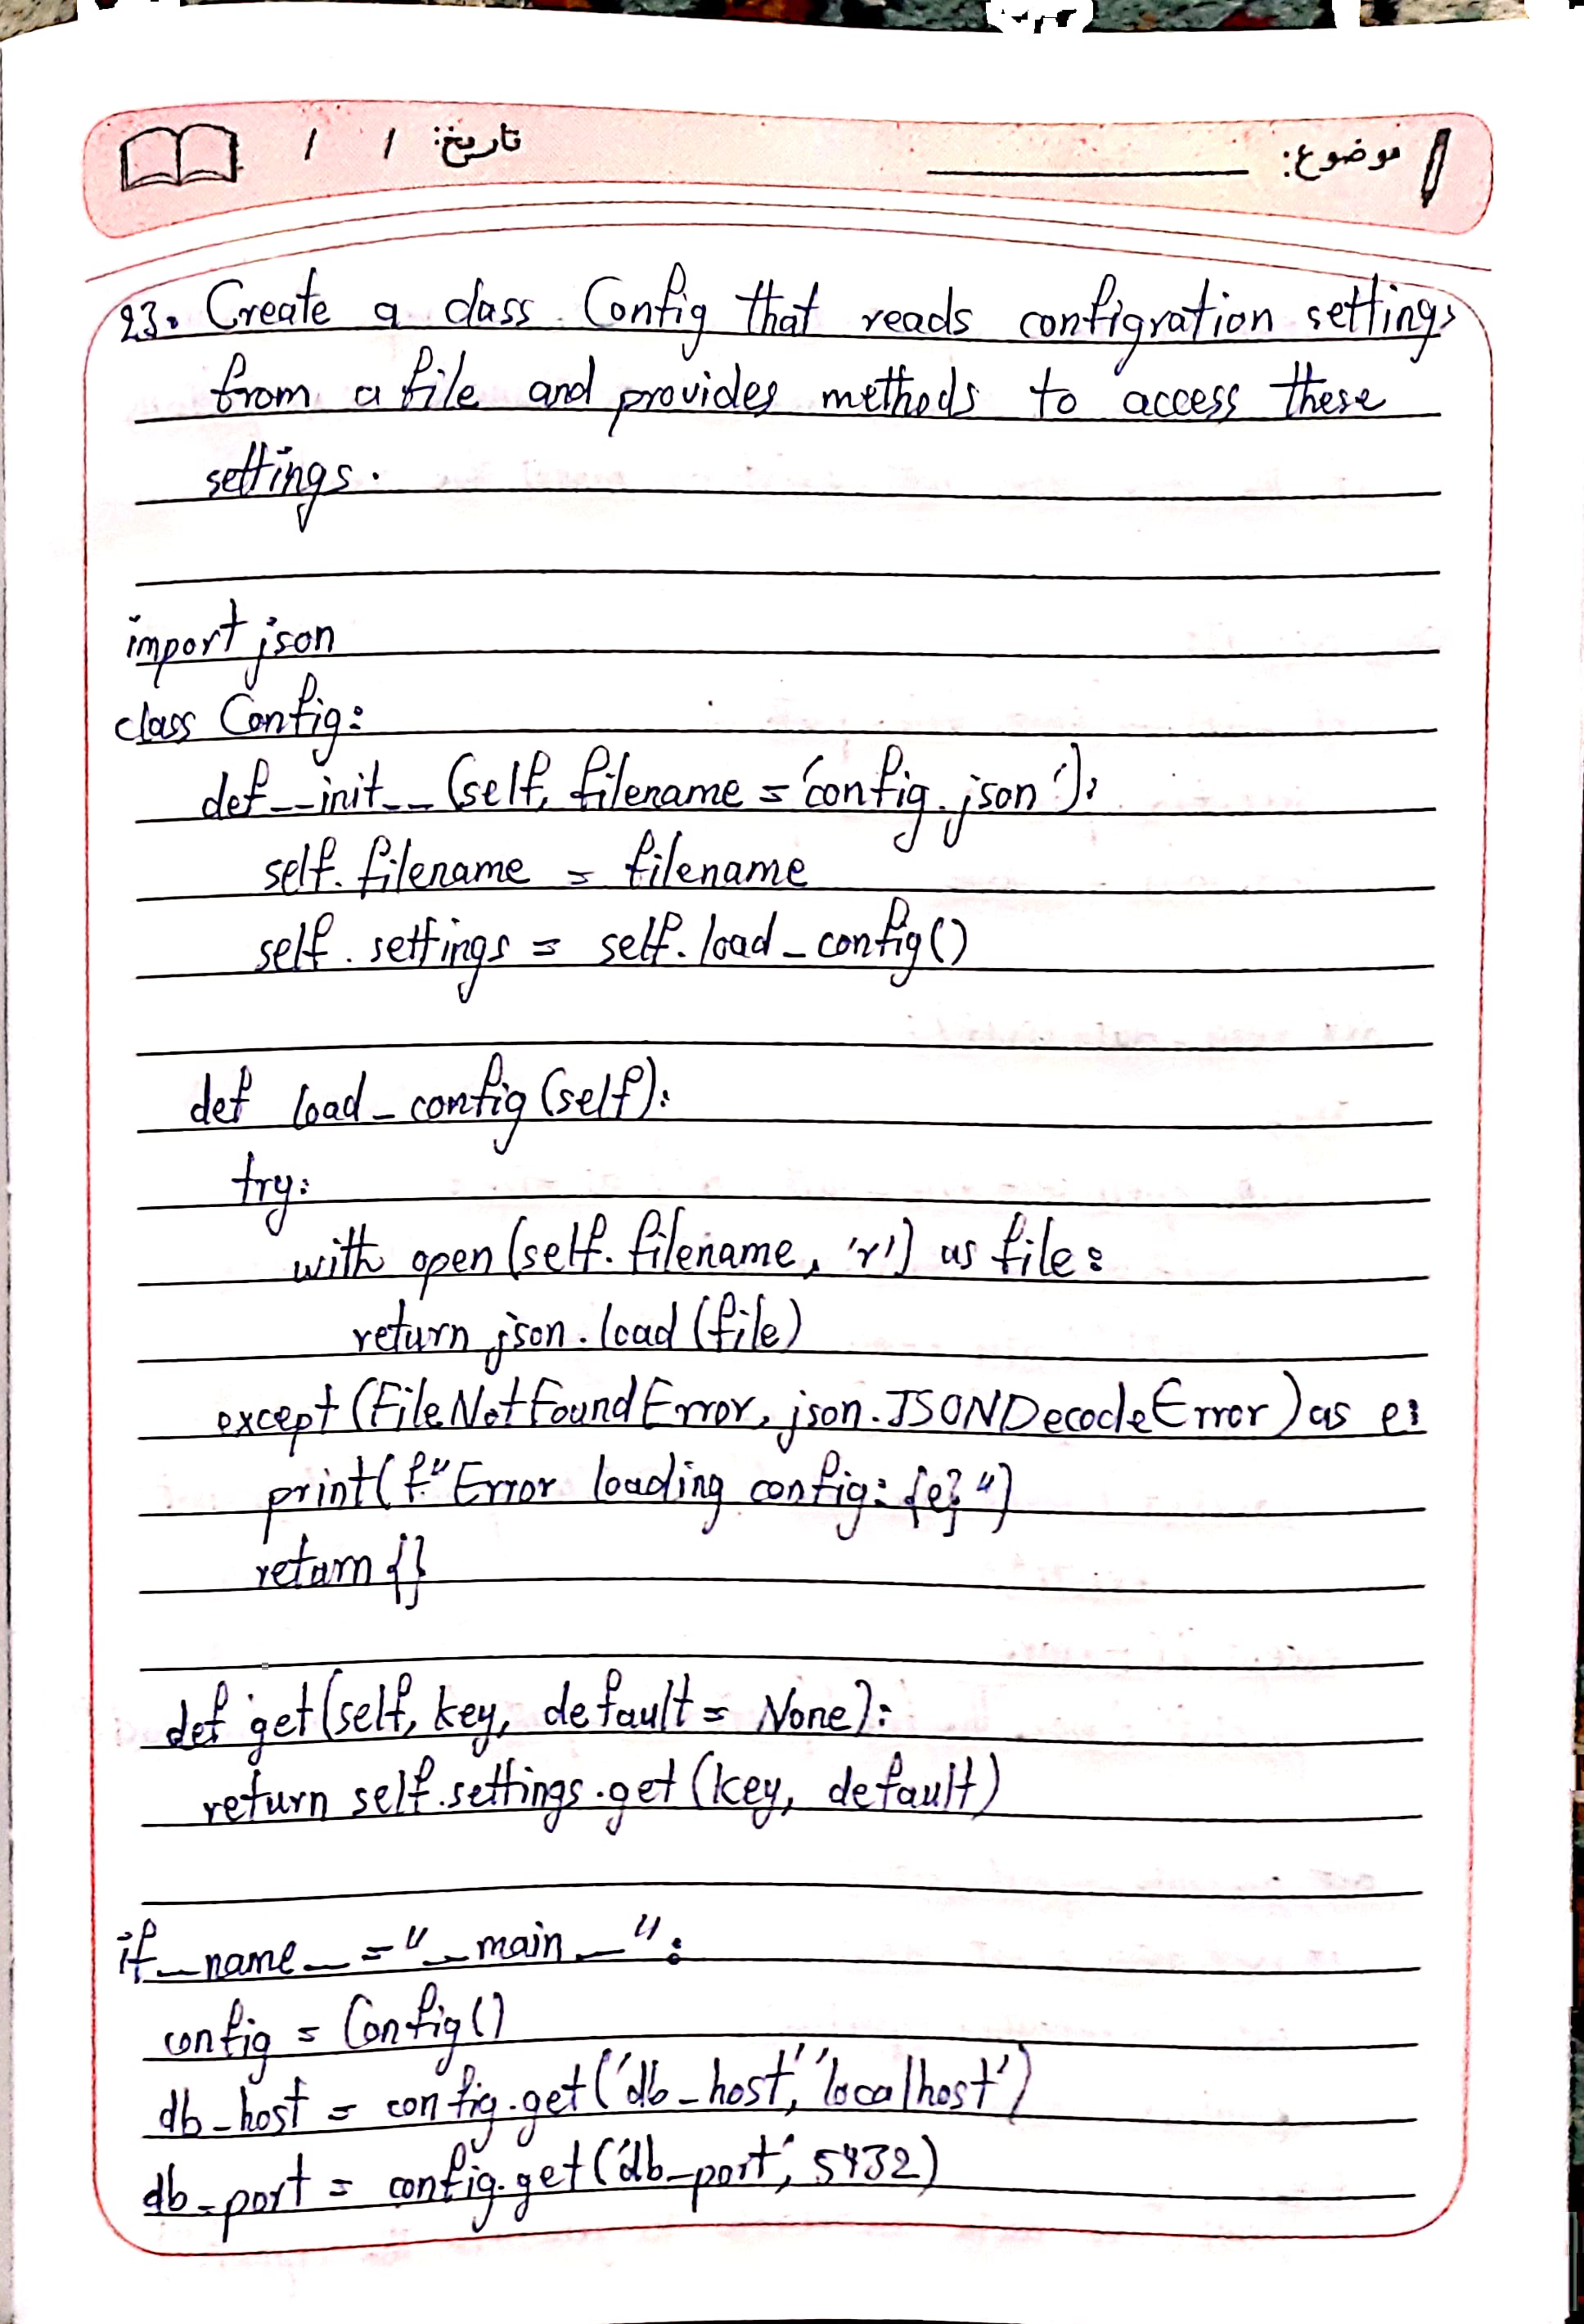 موضوع: تاریخ: / /
23. Create a class Config that reads configration settings
from a file and provides methods to access these
settings.
import json
class Config:
def __init__(self, filename = 'config.json'):
self.filename = filename
self.settings = self.load_config()
def load_config(self):
try:
with open(self.filename, 'r') as file:
return json.load(file)
except (FileNotFoundError, json.JSONDecodeError) as e:
print(f"Error loading config: {e}")
return {}
def get(self, key, default = None):
return self.settings.get(key, default)
if __name__ = "__main__":
config = Config()
db_host = config.get('db_host', 'localhost')
db_port = config.get('db_port', 5432)